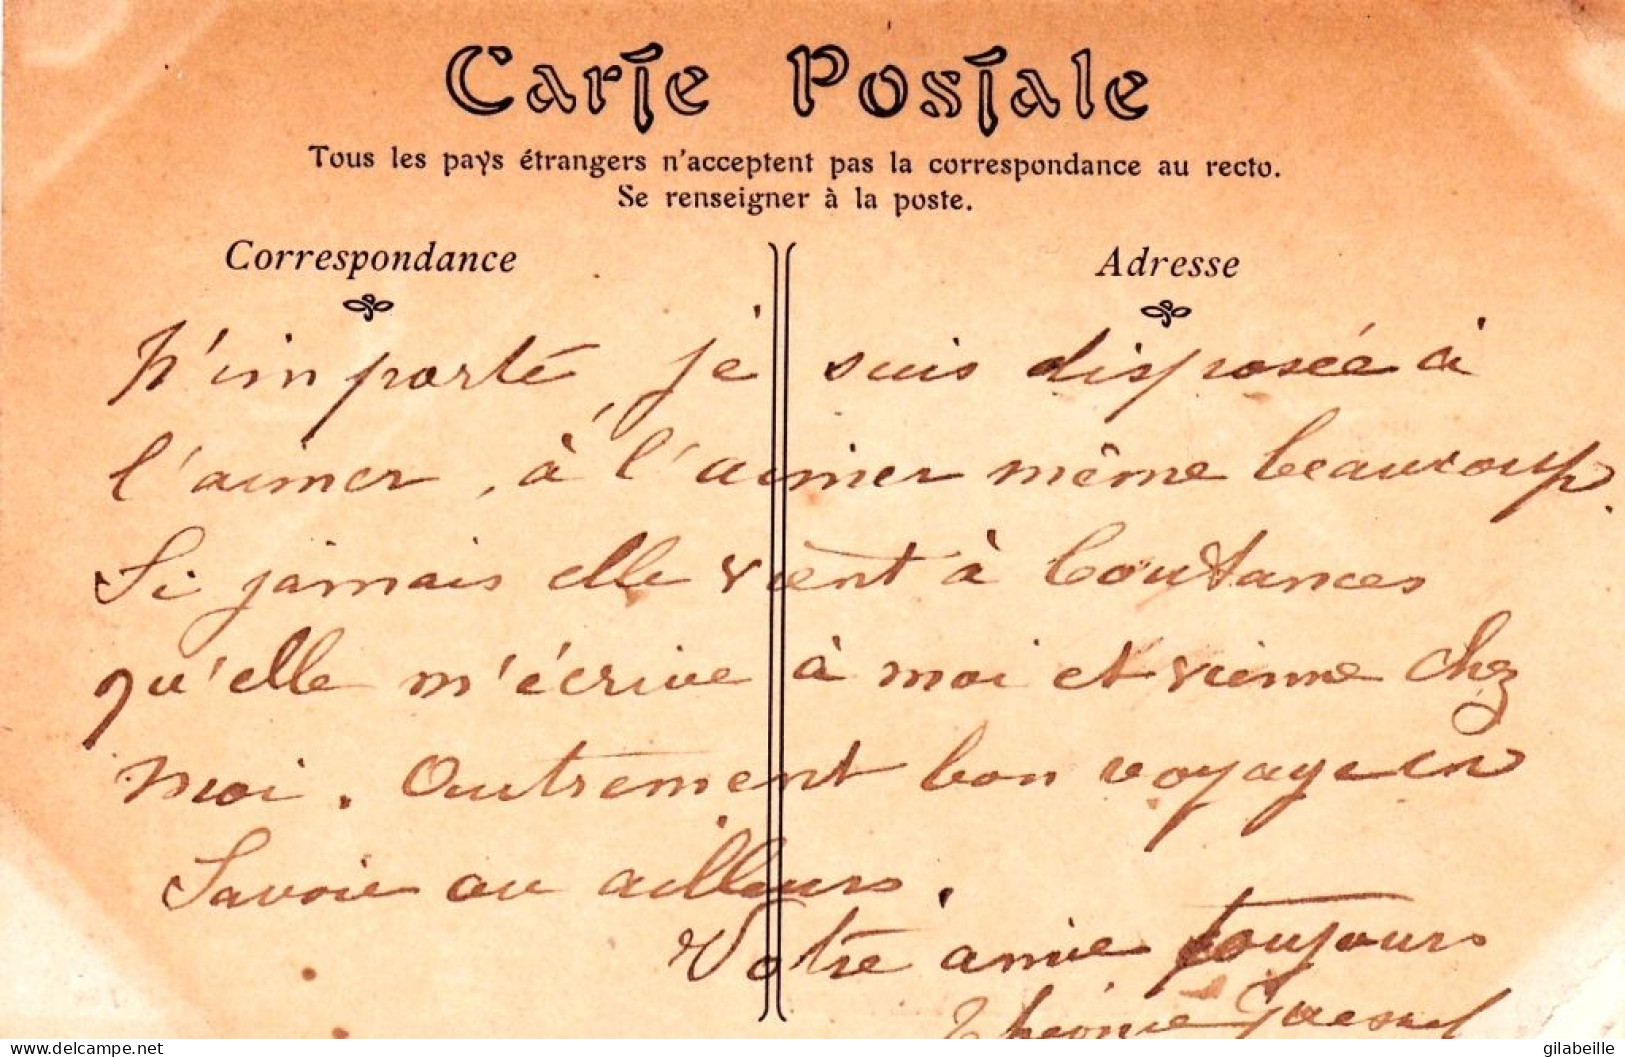 Carte Postale
Tous les pays étrangers n'acceptent pas la correspondance au recto.
Se renseigner à la poste.
Correspondance
Adresse
N'importe, je suis disposée à
l'aimer, à l'aimer même beaucoup.
Si jamais elle vient à Coutances
qu'elle m'écrive à moi et vienne chez
moi. Autrement bon voyage en
Savoie ou ailleurs.
Votre amie toujours
gilabeille
delcampe.net